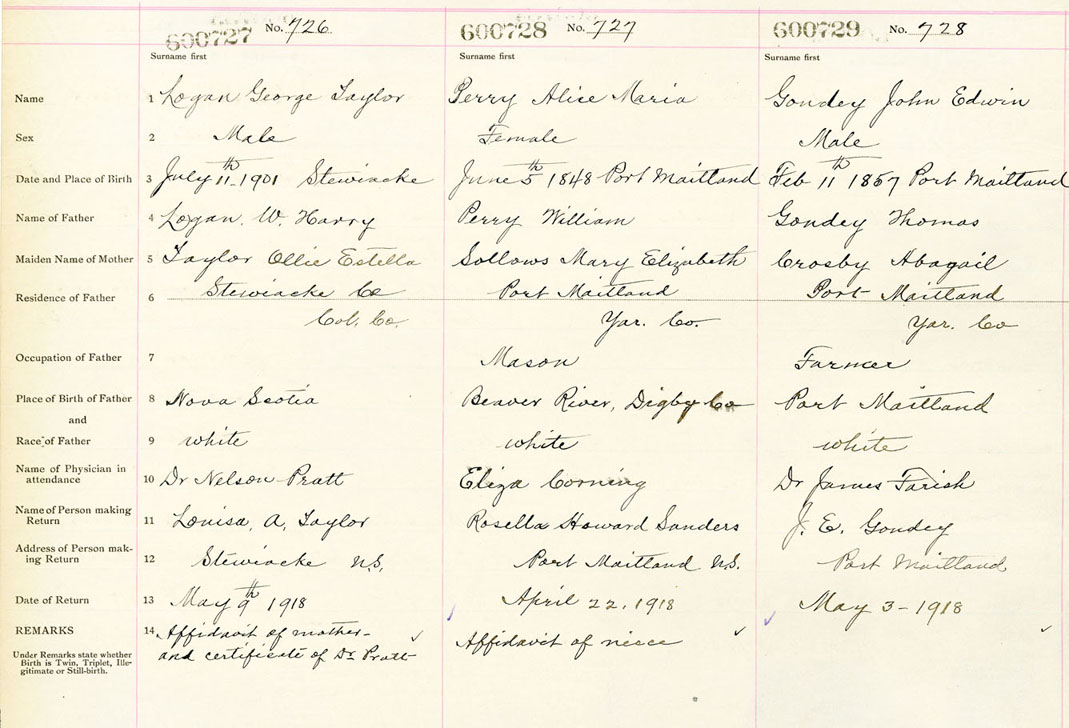 600727 No. 726 600728 No. 727 600729 No. 728
Surname first Surname first Surname first
Name 1 Logan George Taylor Perry Alice Maria Goudey John Edwin
Sex 2 Male Female Male
Date and Place of Birth 3 July 11th 1901 Stewiacke June 5th 1848 Port Maitland Feb 11th 1857 Port Maitland
Name of Father 4 Logan. W. Harry Perry William Goudey Thomas
Maiden Name of Mother 5 Taylor Ollie Estella Sollows Mary Elizabeth Crosby Abagail
Residence of Father 6 Stewiacke Port Maitland Port Maitland
Col. Co. Yar. Co. Yar. Co
Occupation of Father 7 Mason Farmer
Place of Birth of Father 8 Nova Scotia Beaver River, Digby Co Port Maitland
and
Race of Father 9 white white white
Name of Physician in
attendance 10 Dr Nelson Pratt Eliza Corning Dr James Farish
Name of Person making
Return 11 Louisa, A, Taylor Rosella Howard Sanders J. E. Goudey
Address of Person mak-
ing Return 12 Stewiacke N.S. Port Maitland N.S. Port Maitland
Date of Return 13 May 9th 1918 April 22, 1918 May 3-1918
REMARKS 14 Affidavit of mother- Affidavit of niece
Under Remarks state whether and certificate of Dr Pratt
Birth is Twin, Triplet, Ille-
gitimate or Still-birth.